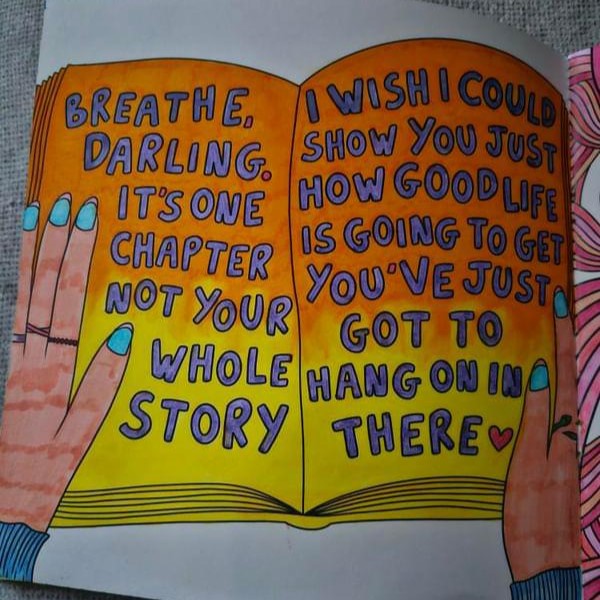 BREATHE,
DARLING.
IT'S ONE
CHAPTER
NOT YOUR
WHOLE
STORY
I WISH I COULD
SHOW YOU JUST
HOW GOOD LIFE
IS GOING TO GET
YOU'VE JUST
GOT TO
HANG ON IN
THERE